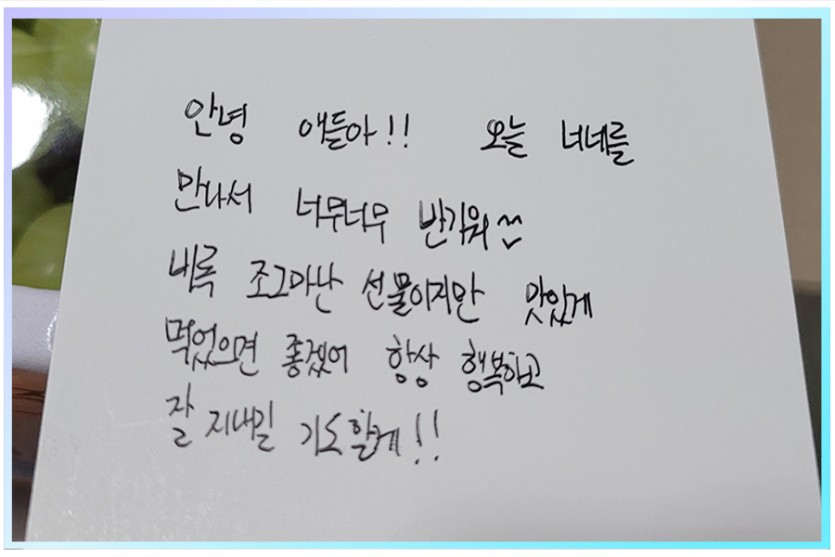 안녕 애들아!! 오늘 너네를
만나서 너무너무 반가워^^
비록 조그마난 선물이지만 맛있게
먹었으면 좋겠어 항상 행복하고
잘 지내길 기도할게!!